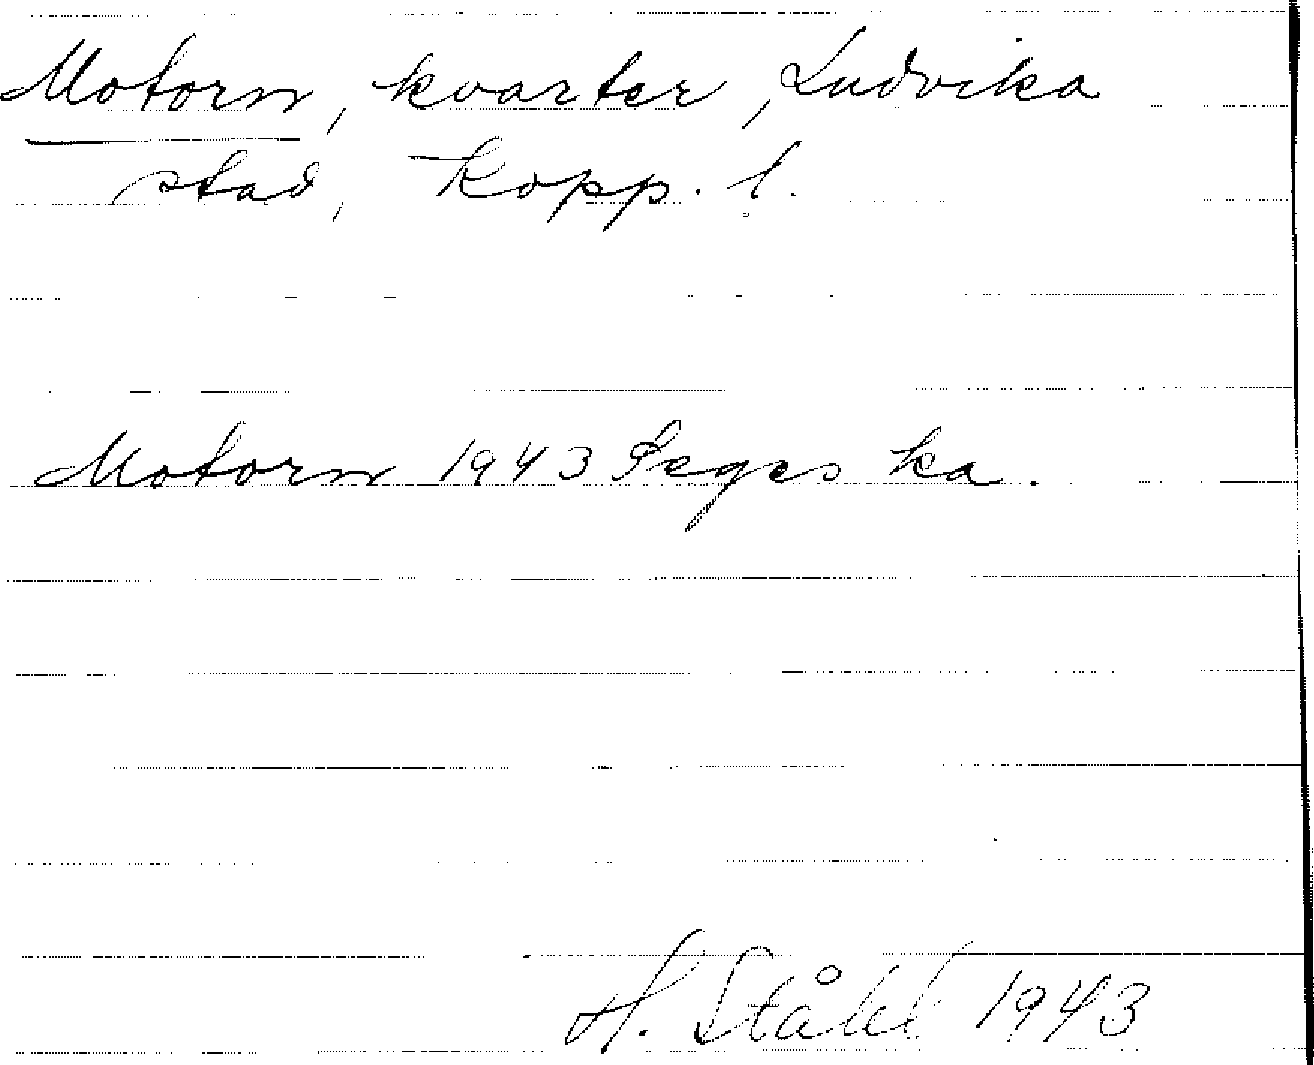 Motorn, kvarter, Ludvika
stad, Kopp. l.
Motorn 1943 Seges ka.
H. Ståhl 1943